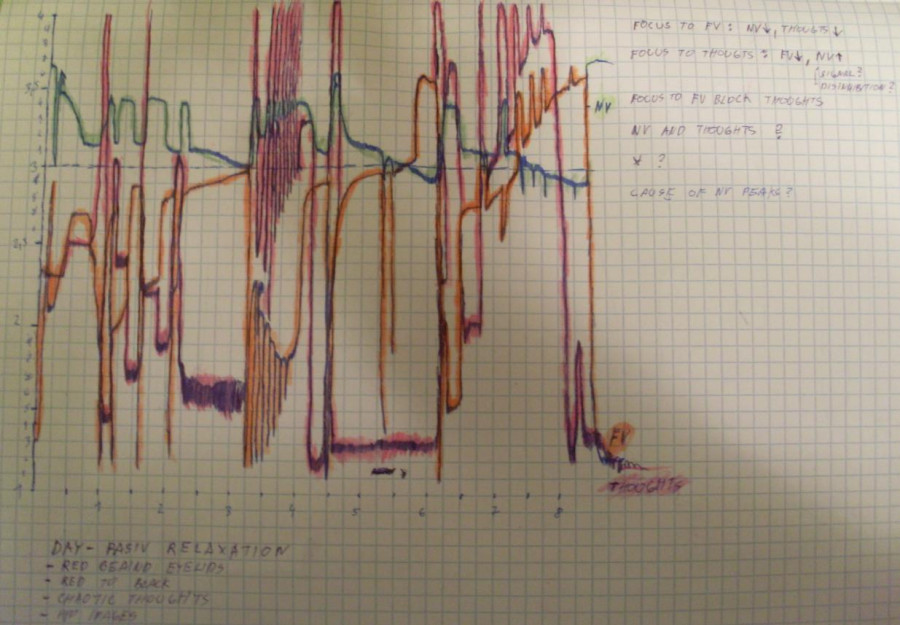 FOCUS TO FV : NV↓, THOUGTS↓
FOCUS TO THOUGTS : FV↓, NV↑
(SIGNAL?
DISTRIBUTION?
NV
FOCUS TO FV BLOCK THOUGTS
NV AND THOUGTS ?
X ?
CAUSE OF NV PEAKS?
4
3,5
3
2,5
2
1
FV
X
THOUGHTS
1 2 3 4 5 6 7 8
DAY - PASIV RELAXATION
- RED BEHIND EYELIDS
- RED TO BLACK
- CHAOTIC THOUGHTS
- NO IMAGES